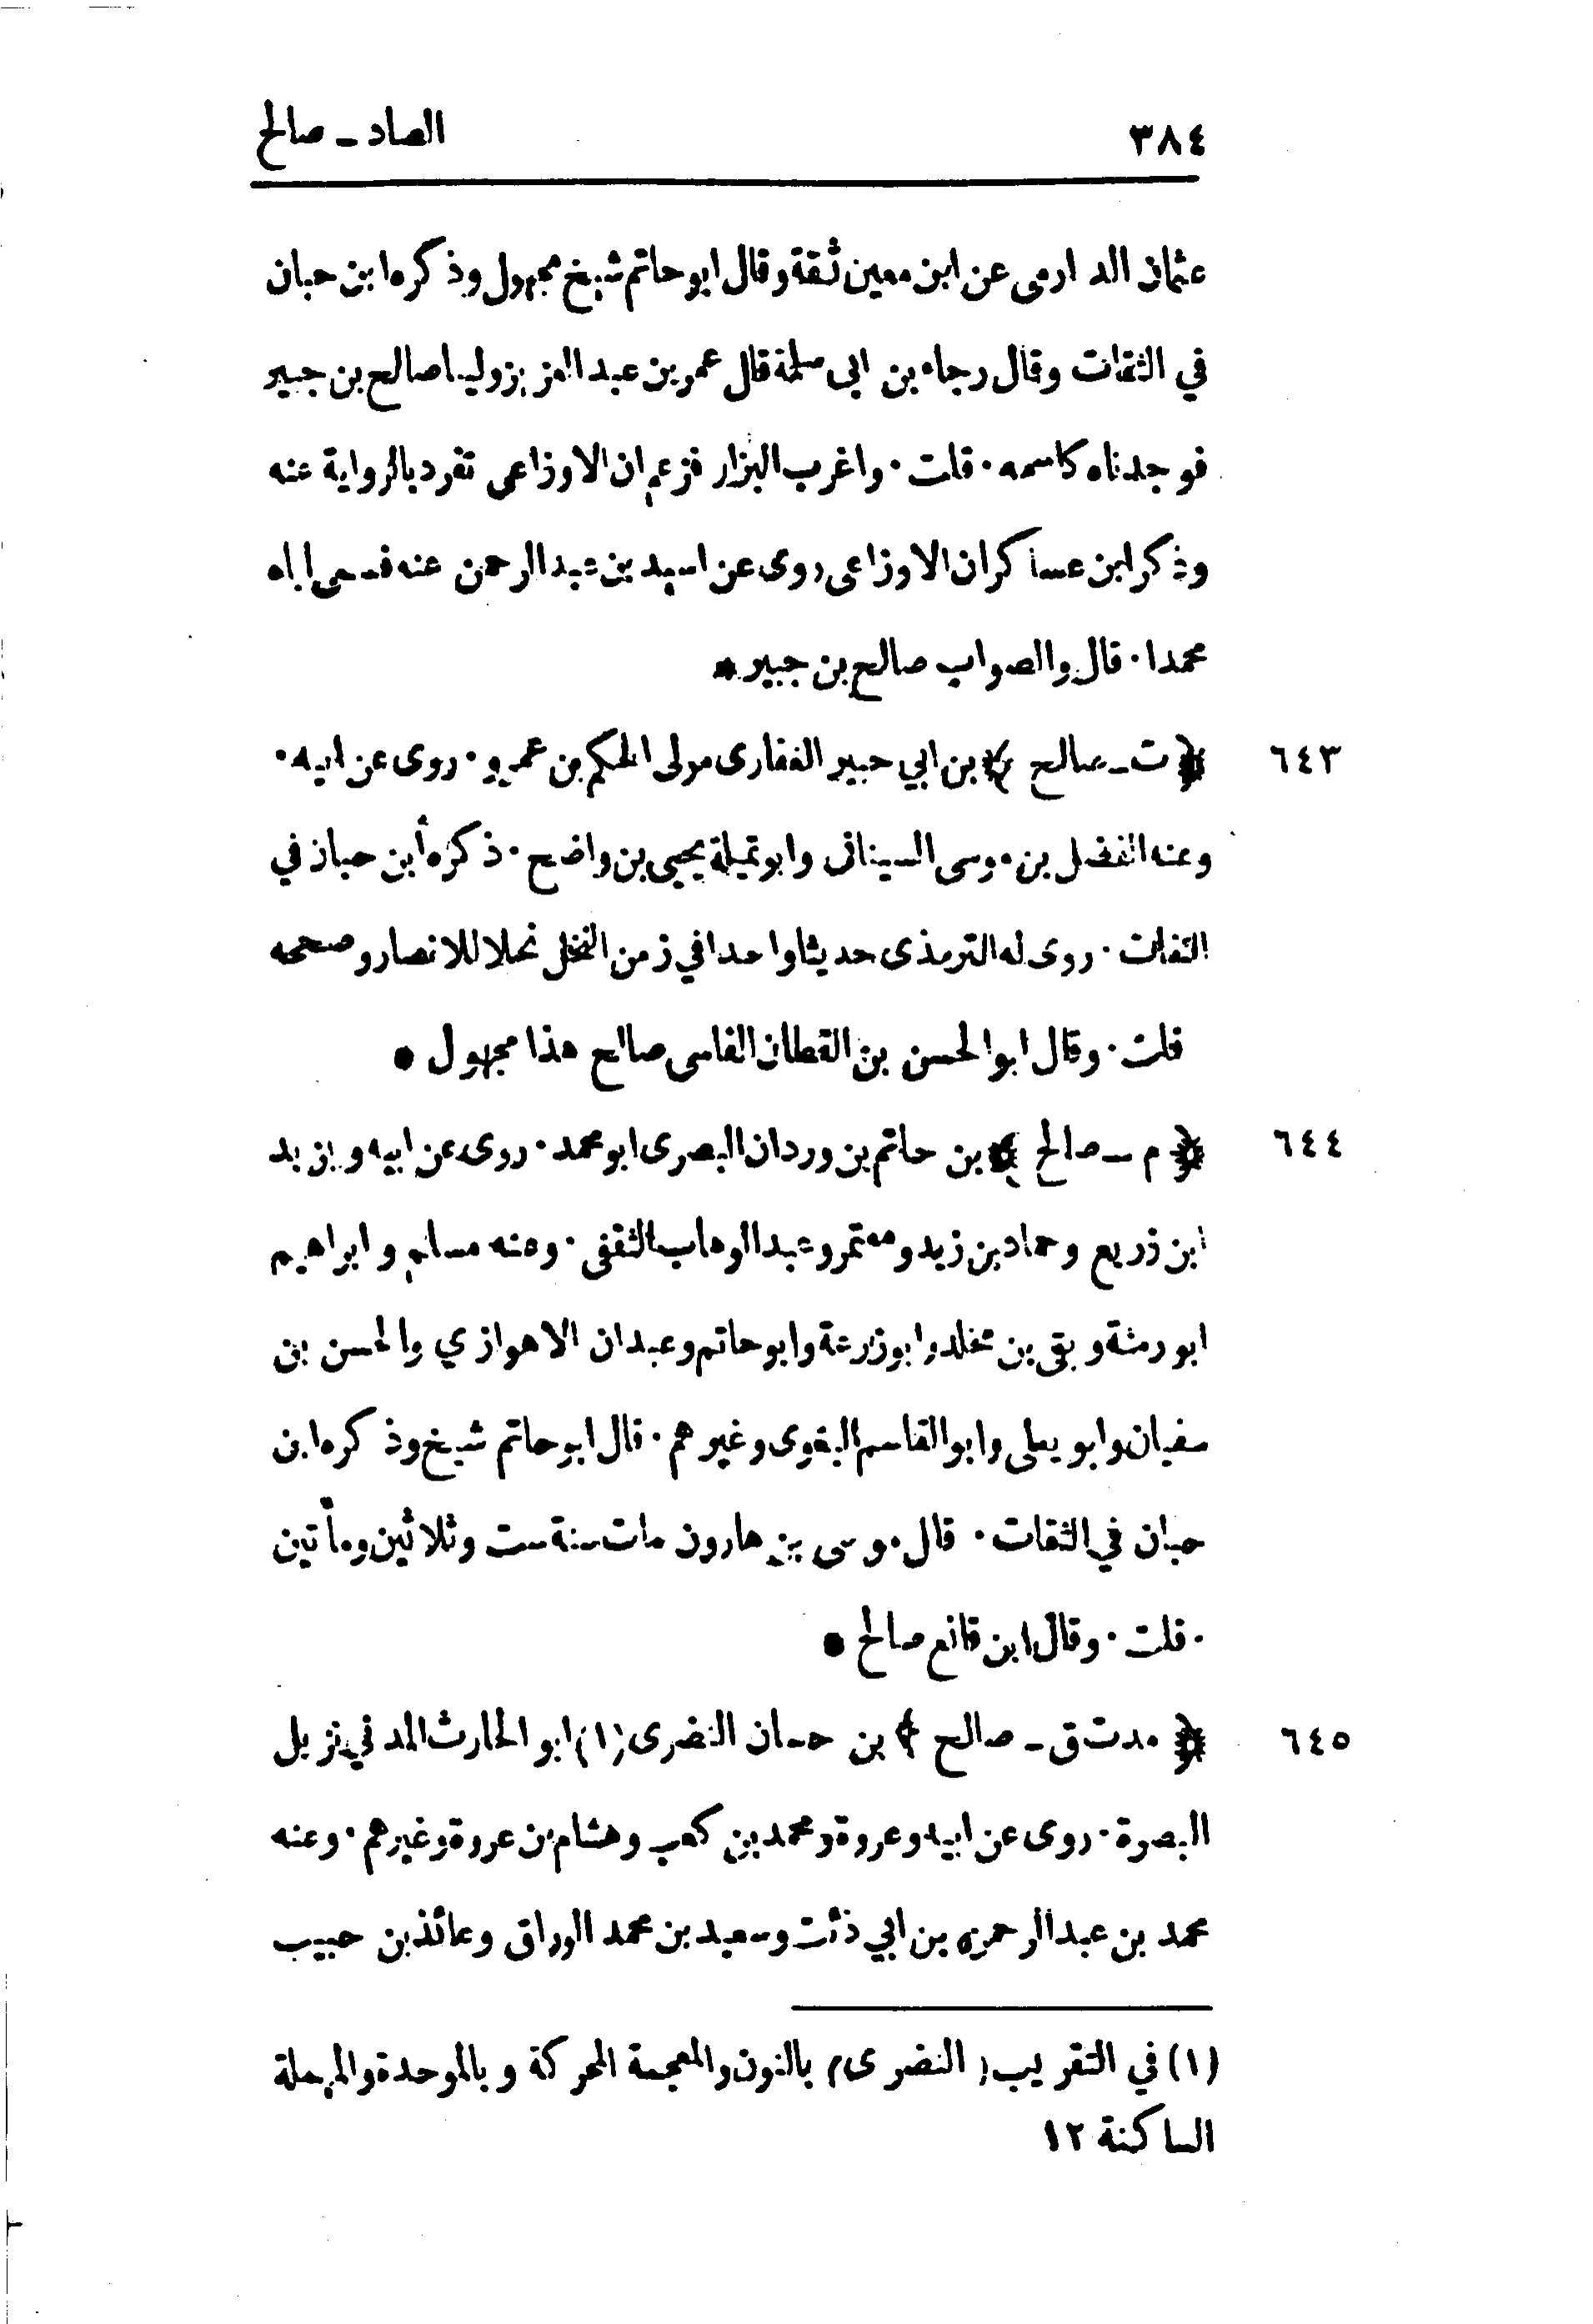 ٣٨٤
الصاد ـ صالح
عثمان الدارمى عن ابن معين ثقة وقال ابوحاتم شيخ مجهول وذكره ابن حبان
في الثقات وقال رجاء بن ابى سلمة قال عمر بن عبد العزيز ولينا صالح بن جبير
فوجدناه كاسمه ٠ قلت ٠ واغرب البزار فزعم ان الاوزاعى تفرد بالرواية عنه
وذكر ابن عساكر ان الاوزاعى روى عن اسيد بن عبد الرحمن عنه فسمى اباه
محمدا ٠ قال والصواب صالح بن جبير *
٦٤٣ ﴿ ت ـ صالح ﴾ بن ابي جبير الغفارى مولى الحكم بن عمرو ٠ روى عن ابيه ٠
وعنه الفضل بن موسى السينانى وابو تميلة يحيى بن واضح ٠ ذكره ابن حبان في
الثقات ٠ روى له الترمذى حديثا واحدا في زمن النخل نخلا للانصار وصححه
قلت ٠ وقال ابو الحسن بن القطان الفاسى صالح هذا مجهول *
٦٤٤ ﴿ م ـ صالح ﴾ بن حاتم بن وردان البصرى ابو محمد ٠ روى عن ابيه ويزيد
ابن زريع وحماد بن زيد ومعتمر وعبد الوهاب الثقفى ٠ وعنه مسلم وابراهيم
ابو رمثة وبقى بن مخلد وابوزرعة وابو حاتم وعبدان الاهوازي والحسن بن
سفيان وابو يعلى وابو القاسم البغوى وغيرهم ٠ قال ابو حاتم شيخ وذكره ابن
حبان في الثقات ٠ قال موسى بن هارون مات سنة ست وثلاثين ومأتين
٠ قلت ٠ وقال ابن قانع صالح *
٦٤٥ ﴿ مدت ق ـ صالح ﴾ بن حسان النضرى (١) ابو الحارث المدني نزيل
البصرة ٠ روى عن ابيه وعروة ومحمد بن كعب وهشام بن عروة وغيرهم ٠ وعنه
محمد بن عبد الرحمن بن ابي ذئب وسعيد بن محمد الوراق وعائذ بن حبيب
(١) في التقريب (النضرى) بالنون والمعجمة المحركة وبالموحدة والمهملة
الساكنة ١٢